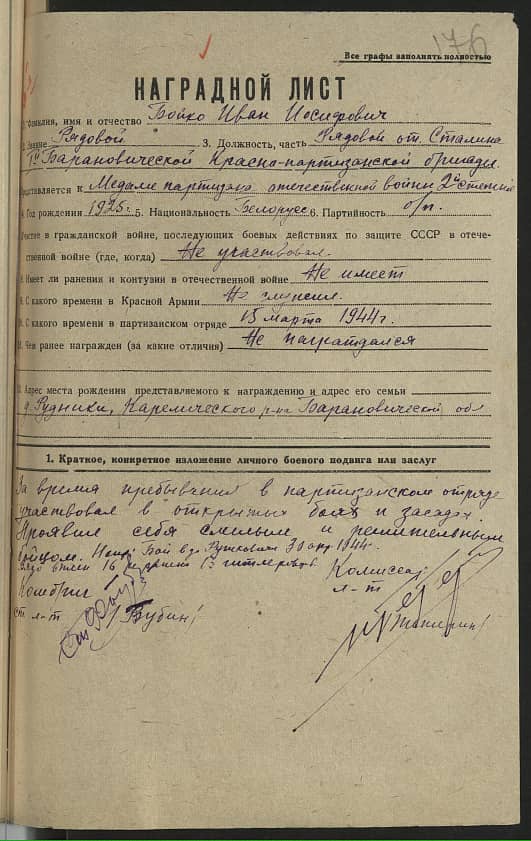 176
Все графы заполнять полностью
НАГРАДНОЙ ЛИСТ
1. Фамилия, имя и отчество Бойко Иван Иосифович
2. Звание Рядовой 3. Должность, часть Рядовой от. Сталина
1ой Барановической Красно-партизанской бригады
Представляется к Медали партизана отечественной войны 2ой степени
4. Год рождения 1925г. 5. Национальность Белорусс 6. Партийность б/п.
Участие в гражданской войне, последующих боевых действиях по защите СССР в отече-
ственной войне (где, когда) Не участвовал.
8. Имеет ли ранения и контузии в отечественной войне Не имеет
9. С какого времени в Красной Армии Не служил.
10. С какого времени в партизанском отряде 15 марта 1944г.
11. Чем ранее награжден (за какие отличия) Не награждался
12. Адрес места рождения представляемого к награждению и адрес его семьи
д. Рудники, Карелического р-на Барановической обл
1. Краткое, конкретное изложение личного боевого подвига или заслуг
За время пребывания в партизанском отряде
участвовал в открытых боях и засадах.
Проявил себя смелым и решительным
бойцом. Бой в д. 30 апр. 1944г.
16 13 гитлеровцев
Комбриг Комиссар
ст. л-т Бубин л-т